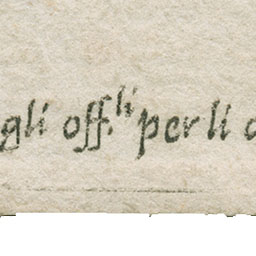 gli off.li per li